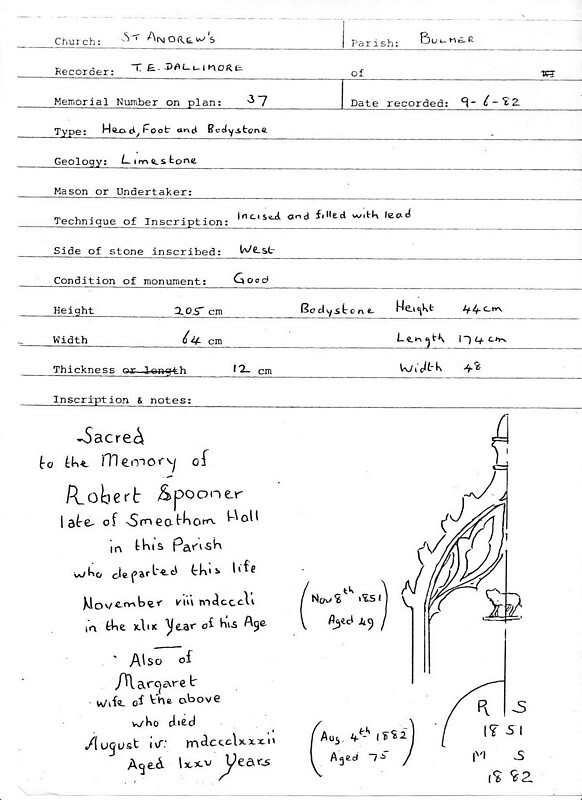 Church: ST ANDREW'S Parish: BULMER
Recorder: T.E. DALLIMORE of
Memorial Number on plan: 37 Date recorded: 9-6-82
Type: Head, Foot and Bodystone
Geology: Limestone
Mason or Undertaker:
Technique of Inscription: Incised and filled with lead
Side of stone inscribed: West
Condition of monument: Good
Height 205 cm Bodystone Height 44cm
Width 64 cm Length 174cm
Thickness or length 12 cm Width 48
Inscription & notes:
Sacred
to the Memory of
Robert Spooner
late of Smeatham Hall
in this Parish
who departed this life
November viii mdcccli (Nov 8th 1851
in the xlix Year of his Age Aged 49)
Also of
Margaret
wife of the above
who died
August iv: mdccclxxxii (Aug. 4th 1882
Aged lxxv Years Aged 75)
R S
1851
M S
1882